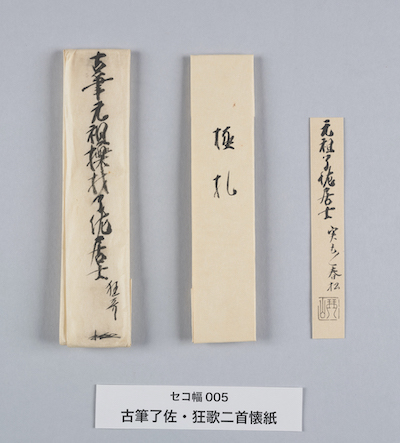 古筆元祖櫟材了佐居士
狂哥
極札
元祖了佐居士
セコ幅 005
古筆了佐・狂歌二首懐紙